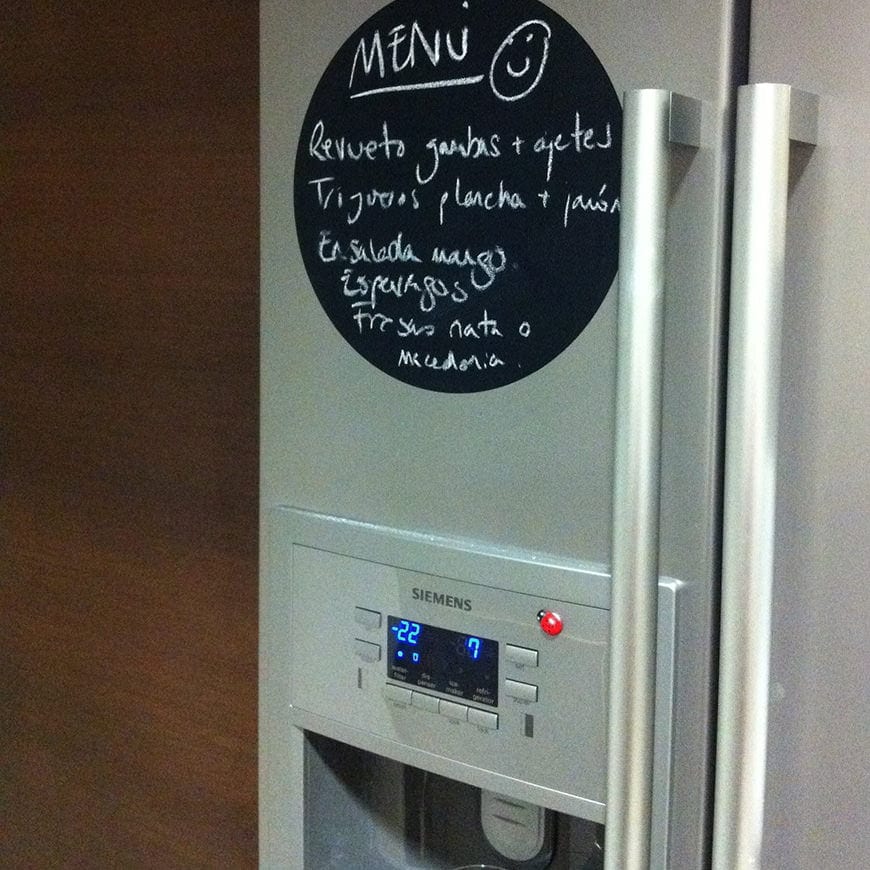 MENÚ
Revueto gambas + ajetes
Trigueros plancha + jamón
Ensalada mango
Espárragos
Fresas nata o
Macedonia.
SIEMENS
-22 7
water filter dispenser ice maker refrigerator